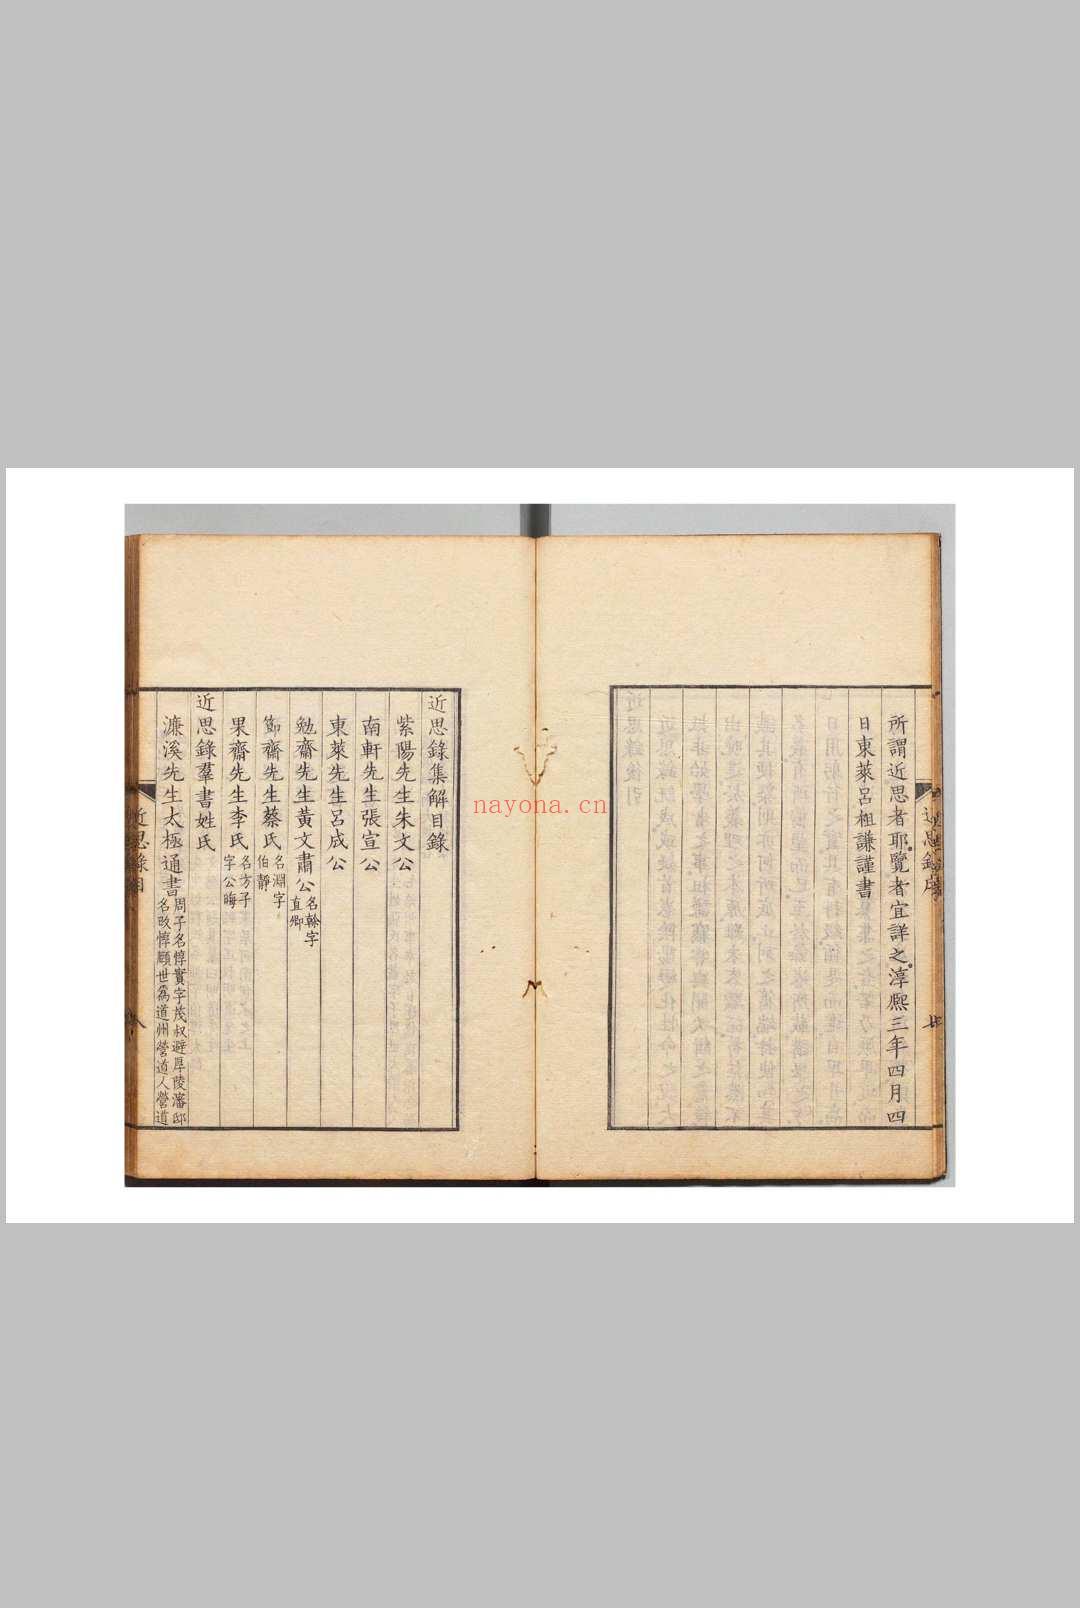 所謂近思者耶覽者宜詳之淳熙三年四月四
日東萊呂祖謙謹書
近思錄集解目錄
紫陽先生朱文公
南軒先生張宣公
東萊先生呂成公
勉齋先生黃文肅公名榦字
直卿
節齋先生蔡氏名淵字
伯靜
果齋先生李氏名方子
字公晦
近思錄羣書姓氏
濂溪先生太極通書周子名惇實字茂叔避厚陵藩邸
名改惇頤世爲道州營道人營道
近思錄目
nayona.cn